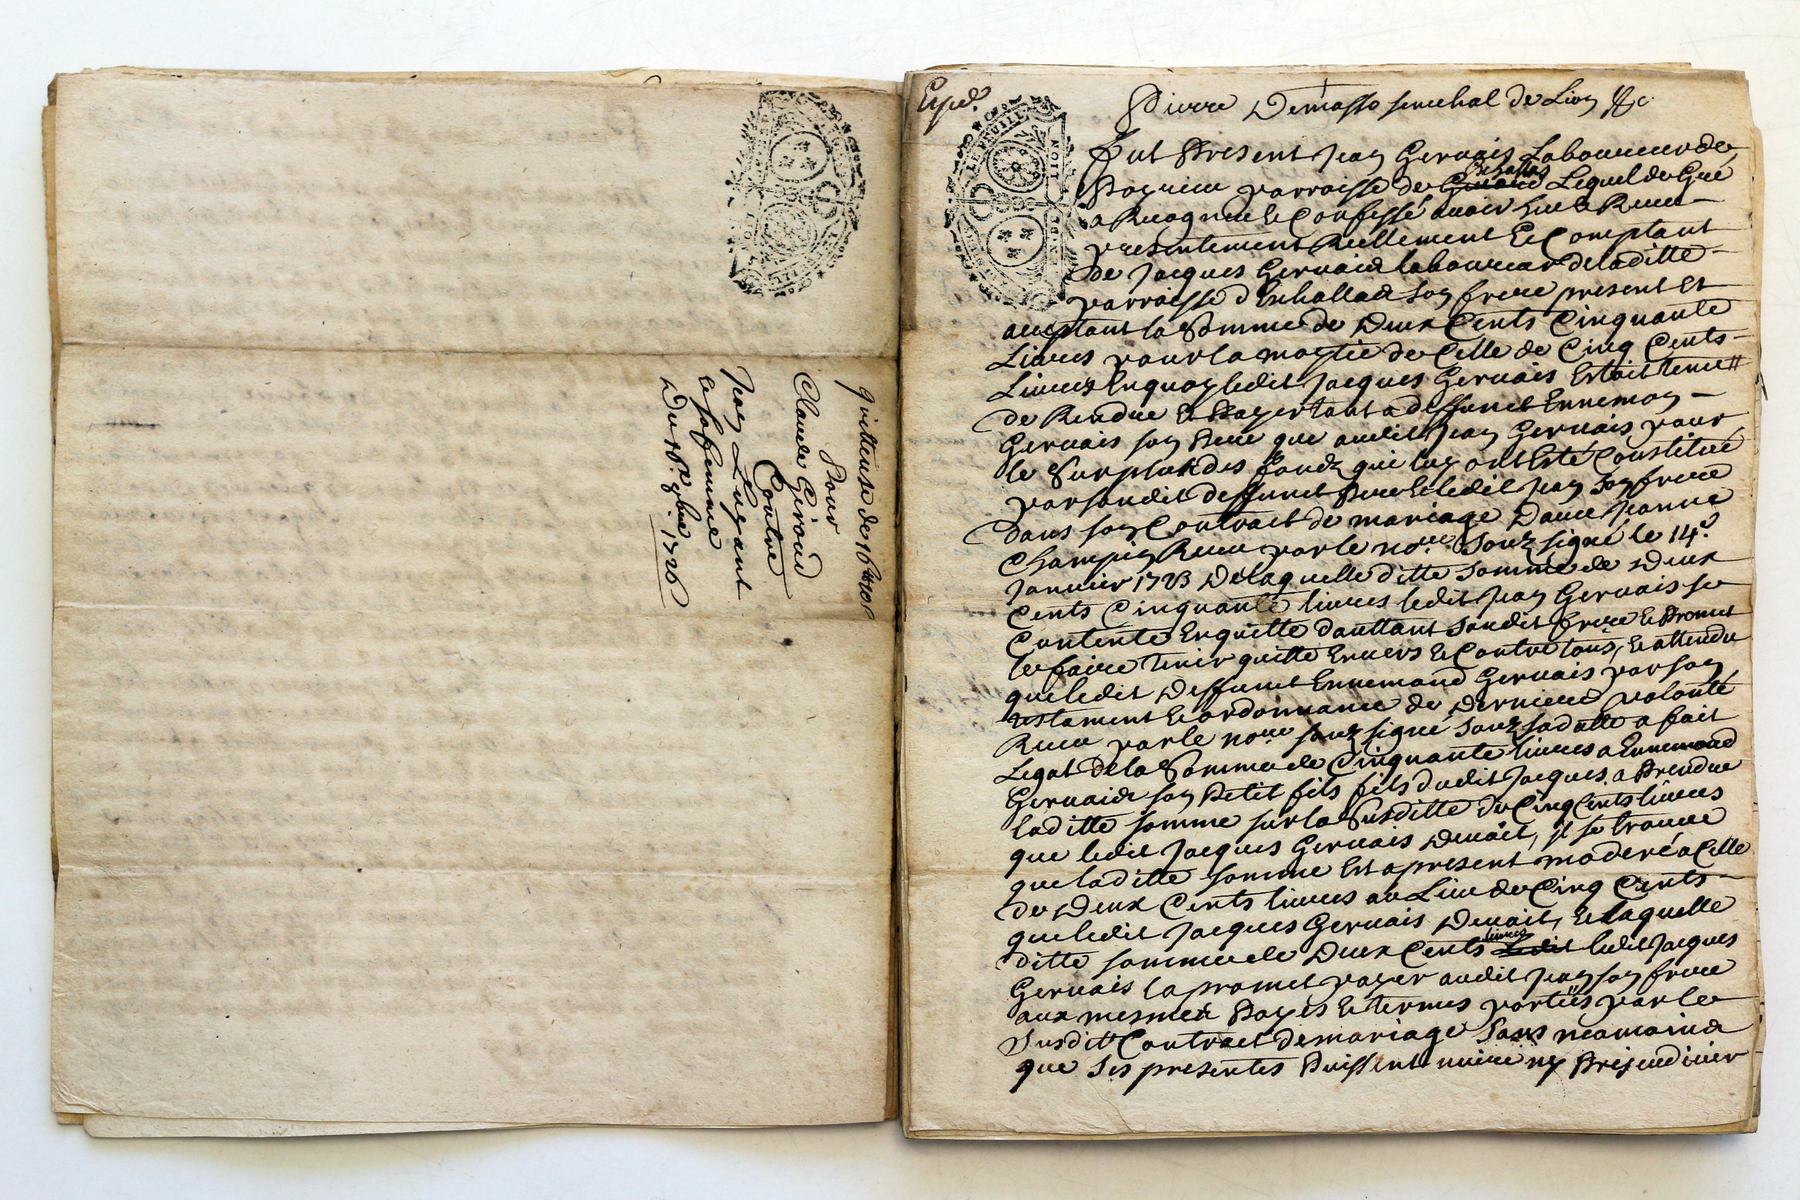 quittense de 16
Pour
Claude Giroud
Contre
Jean Lugant
et sa femme
Du 18e 8bre 1726
Exped.
Pierre Demasso senechal de Lion &c
LE FEUILLE
LION
fut Present Jean Gervais Laboureur de
parroisse de Lequel de Gré
a Recognu et Confessé avoir heu et Receu
presentement Reellement et Comptant
de Jacques Gervais laboureur de laditte
parroisse d'Enhallas son frere present et
acceptant la Somme de Deux Cents Cinquante
Livres pour la moytié de Celle de Cinq Cents
Livres En quoy ledit Jacques Gervais Estoit tenu
de Rendre et Payer tant a deffunct Ennemon
Gervais son Pere que audit Jean Gervais pour
le Surplus des fonds qui luy ont Esté Constitué
par sondit deffunct Pere et ledit Jean son frere
dans son Contract de mariage Dame Jeanne
Champin Receu par le nore. Souz signé le 14e
Janvier 1723 De laquelle ditte somme de Deux
Cents Cinquante livres ledit Jean Gervais se
Contente En quitte dauttant sondit frere et Promet
le faire tenir quitte Envers et Contre tous, et attendu
que ledit Deffunct Ennemond Gervais par son
testament et ordonnance de derniere volonté
Receu par le nore souz signé souz sa datte a fait
Legat de la Somme de Cinquante livres a Ennemond
Gervais son Petit fils fils dudit Jacques a Prendre
laditte somme sur la Susditte de Cinq Cents livres
que ledit Jacques Gervais Devait, il se trouve
que laditte somme Est a present moderé a Celle
de Deux Cents livres au Lieu de Cinq Cents
que ledit Jacques Gervais Devait, et laquelle
ditte somme de Deux Cents livres ledit Jacques
Gervais la promet payer audit Jean son frere
aux mesmes Payes et termes portéés par le
Susdit Contract de mariage Sans neamoins
que ses presentes Puissent nuire ny Prejudicier